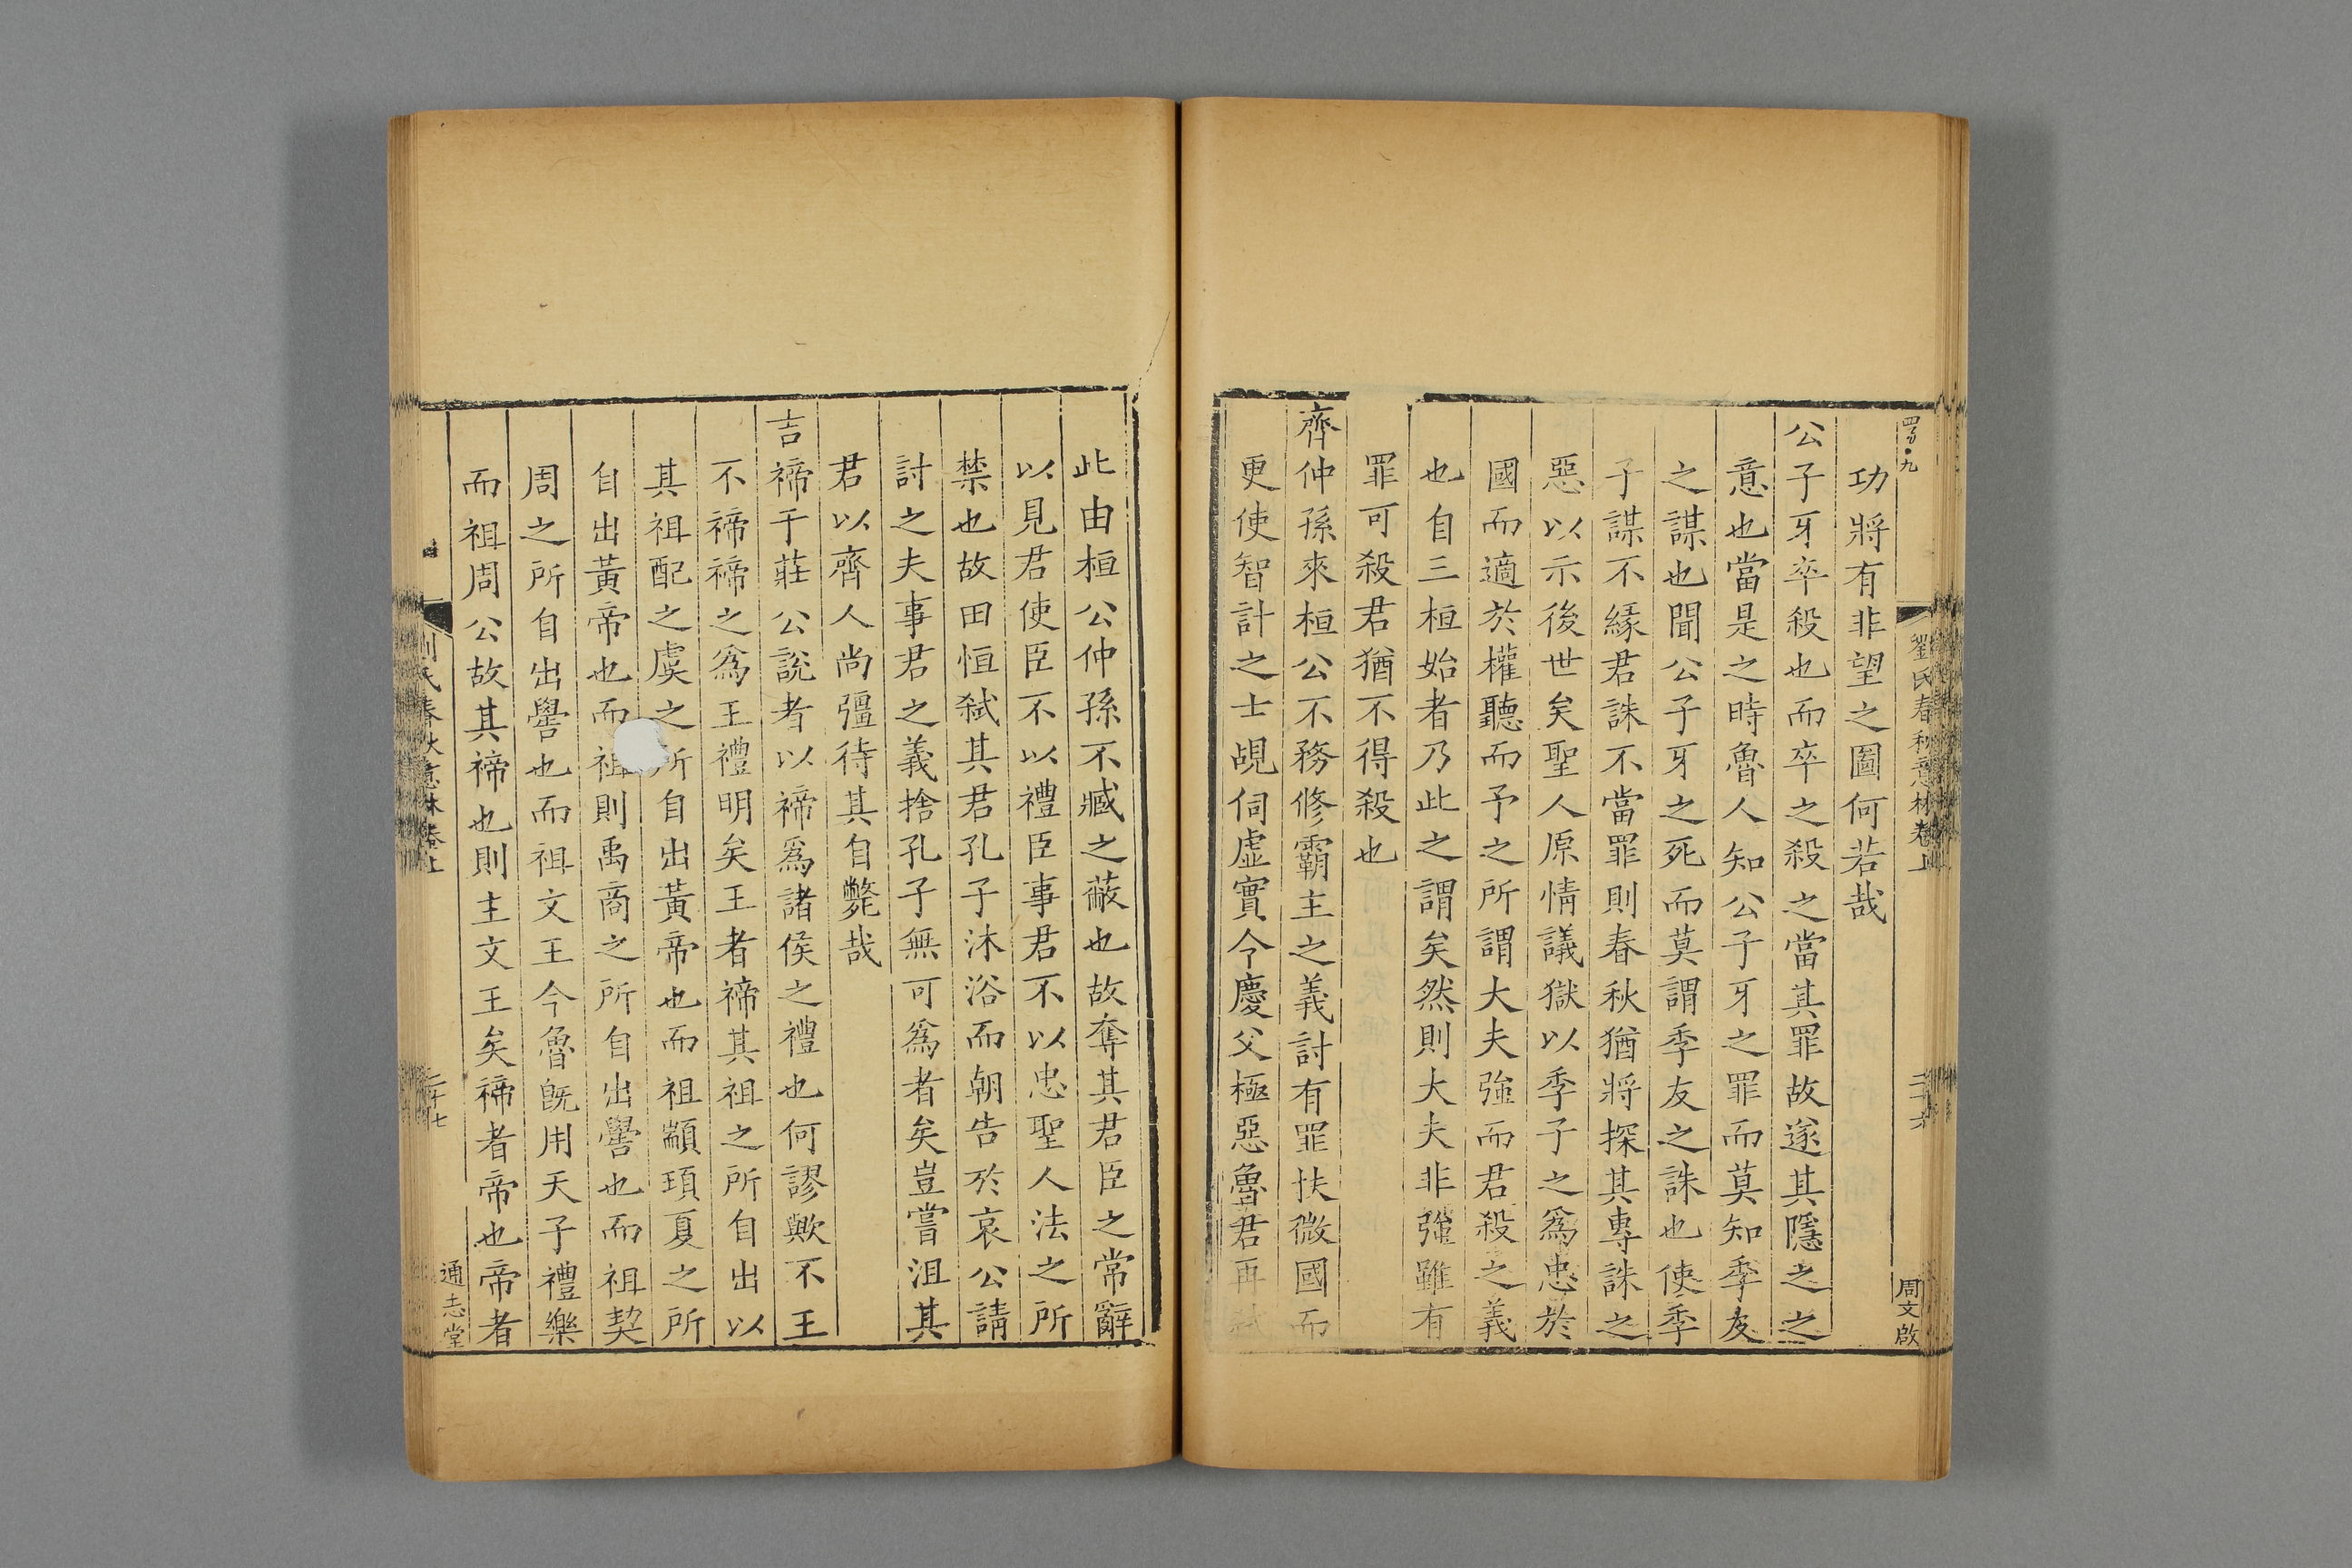 劉氏春秋意林卷上
二十六
周文啟
功將有非望之圖何若哉
公子牙卒殺也而卒之殺之當其罪故遂其隱之之
意也當是之時魯人知公子牙之罪而莫知季友
之謀也聞公子牙之死而莫謂季友之誅也使季
子謀不緣君誅不當罪則春秋猶將探其專誅之
惡以示後世矣聖人原情議獄以季子之爲忠於
國而適於權聽而予之所謂大夫強而君殺之義
也自三桓始者乃此之謂矣然則大夫非強雖有
罪可殺君猶不得殺也
齊仲孫來桓公不務修霸主之義討有罪扶微國而
更使智計之士覘伺虛實今慶父極惡魯君再弑
此由桓公仲孫不臧之蔽也故奪其君臣之常辭
以見君使臣不以禮臣事君不以忠聖人法之所
禁也故田恒弑其君孔子沐浴而朝告於哀公請
討之夫事君之義捨孔子無可爲者矣豈嘗沮其
君以齊人尚彊待其自斃哉
吉禘于莊公說者以禘爲諸侯之禮也何謬歟不王
不禘禘之爲王禮明矣王者禘其祖之所自出以
其祖配之虞之所自出黃帝也而祖顓頊夏之所
自出黃帝也而祖則禹商之所自出嚳也而祖契
周之所自出嚳也而祖文王今魯旣用天子禮樂
而祖周公故其禘也則主文王矣禘者帝也帝者
劉氏春秋意林卷上
二十七
通志堂